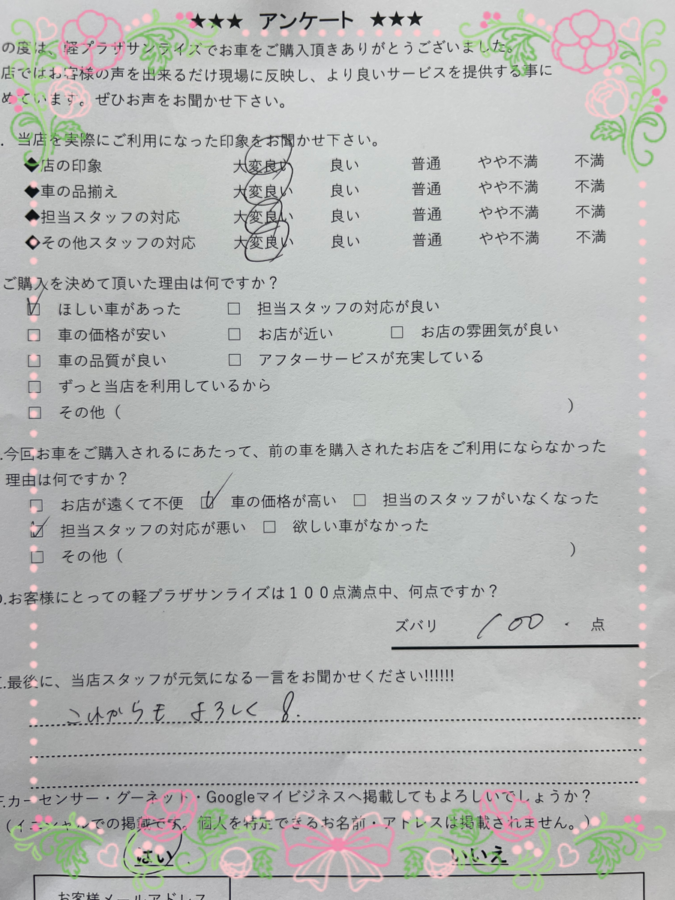 ★★★ アンケート ★★★
の度は、軽プラザサンライズでお車をご購入頂きありがとうございました。
店ではお客様の声を出来るだけ現場に反映し、より良いサービスを提供する事に
めています。ぜひお声をお聞かせ下さい。
. 当店を実際にご利用になった印象をお聞かせ下さい。
◆店の印象 大変良い 良い 普通 やや不満 不満
◆車の品揃え 大変良い 良い 普通 やや不満 不満
◆担当スタッフの対応 大変良い 良い 普通 やや不満 不満
◇その他スタッフの対応 大変良い 良い 普通 やや不満 不満
ご購入を決めて頂いた理由は何ですか？
☑ ほしい車があった □ 担当スタッフの対応が良い
□ 車の価格が安い □ お店が近い □ お店の雰囲気が良い
□ 車の品質が良い □ アフターサービスが充実している
□ ずっと当店を利用しているから
□ その他（ ）
.今回お車をご購入されるにあたって、前の車を購入されたお店をご利用にならなかった
理由は何ですか？
□ お店が遠くて不便 ☑ 車の価格が高い □ 担当のスタッフがいなくなった
☑ 担当スタッフの対応が悪い □ 欲しい車がなかった
□ その他（ ）
.お客様にとっての軽プラザサンライズは１００点満点中、何点ですか？
ズバリ 100 . 点
.最後に、当店スタッフが元気になる一言をお聞かせください!!!!!!
これからもよろしく
F.カーセンサー・グーネット・Googleマイビジネスへ掲載してもよろしいでしょうか？
（イニシャルでの掲載です。個人を特定できるお名前・アドレスは掲載されません。）
はい いいえ
お客様メールアドレス